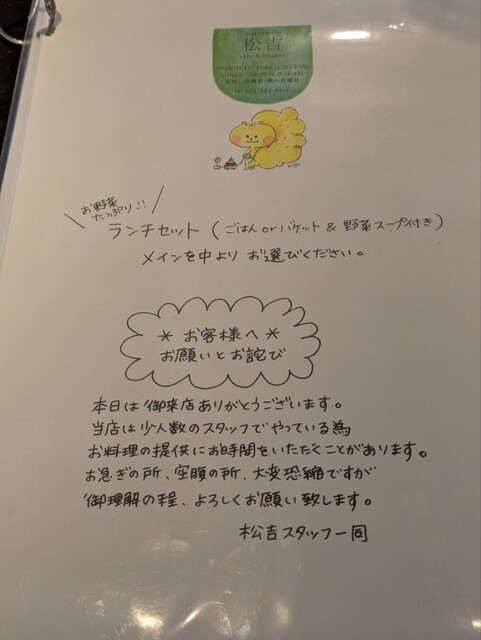 松吉
cafe & kitchen
お野菜
たっぷり!!
ランチセット (ごはん or バケット & 野菜スープ付き)
メインを中より お選びください。
* お客様へ *
お願いとお詫び
本日は御来店ありがとうございます。
当店は少人数のスタッフでやっている為
お料理の提供にお時間をいただくことがあります。
お急ぎの所、空腹の所、大変恐縮ですが
御理解の程、よろしくお願い致します。
松吉スタッフ一同